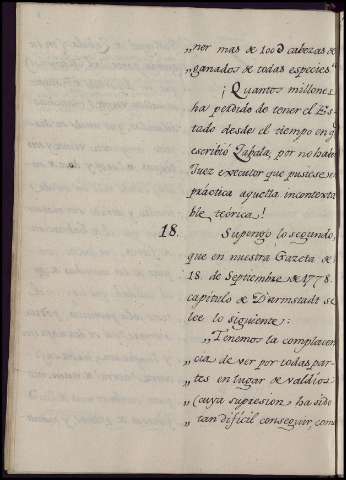 „ner mas de 100D cabezas de
„ganados de todas especies."
¡Quantos millones
ha perdido de tener el Es-
tado desde el tiempo en q
escribió Zabala, por no haber
Juez executor que pusiese en
práctica aquella incontexta
ble teórica!
18. Supongo lo segundo,
que en nuestra Gazeta de
18 de Septiembre de 1778.
capítulo de Darmstadt se
lee lo siguiente:
„Tenemos la complacen
„cia de ver por todas par-
„tes en lugar de valdíos
„(cuya supresion ha sido
„tan difícil conseguir, como